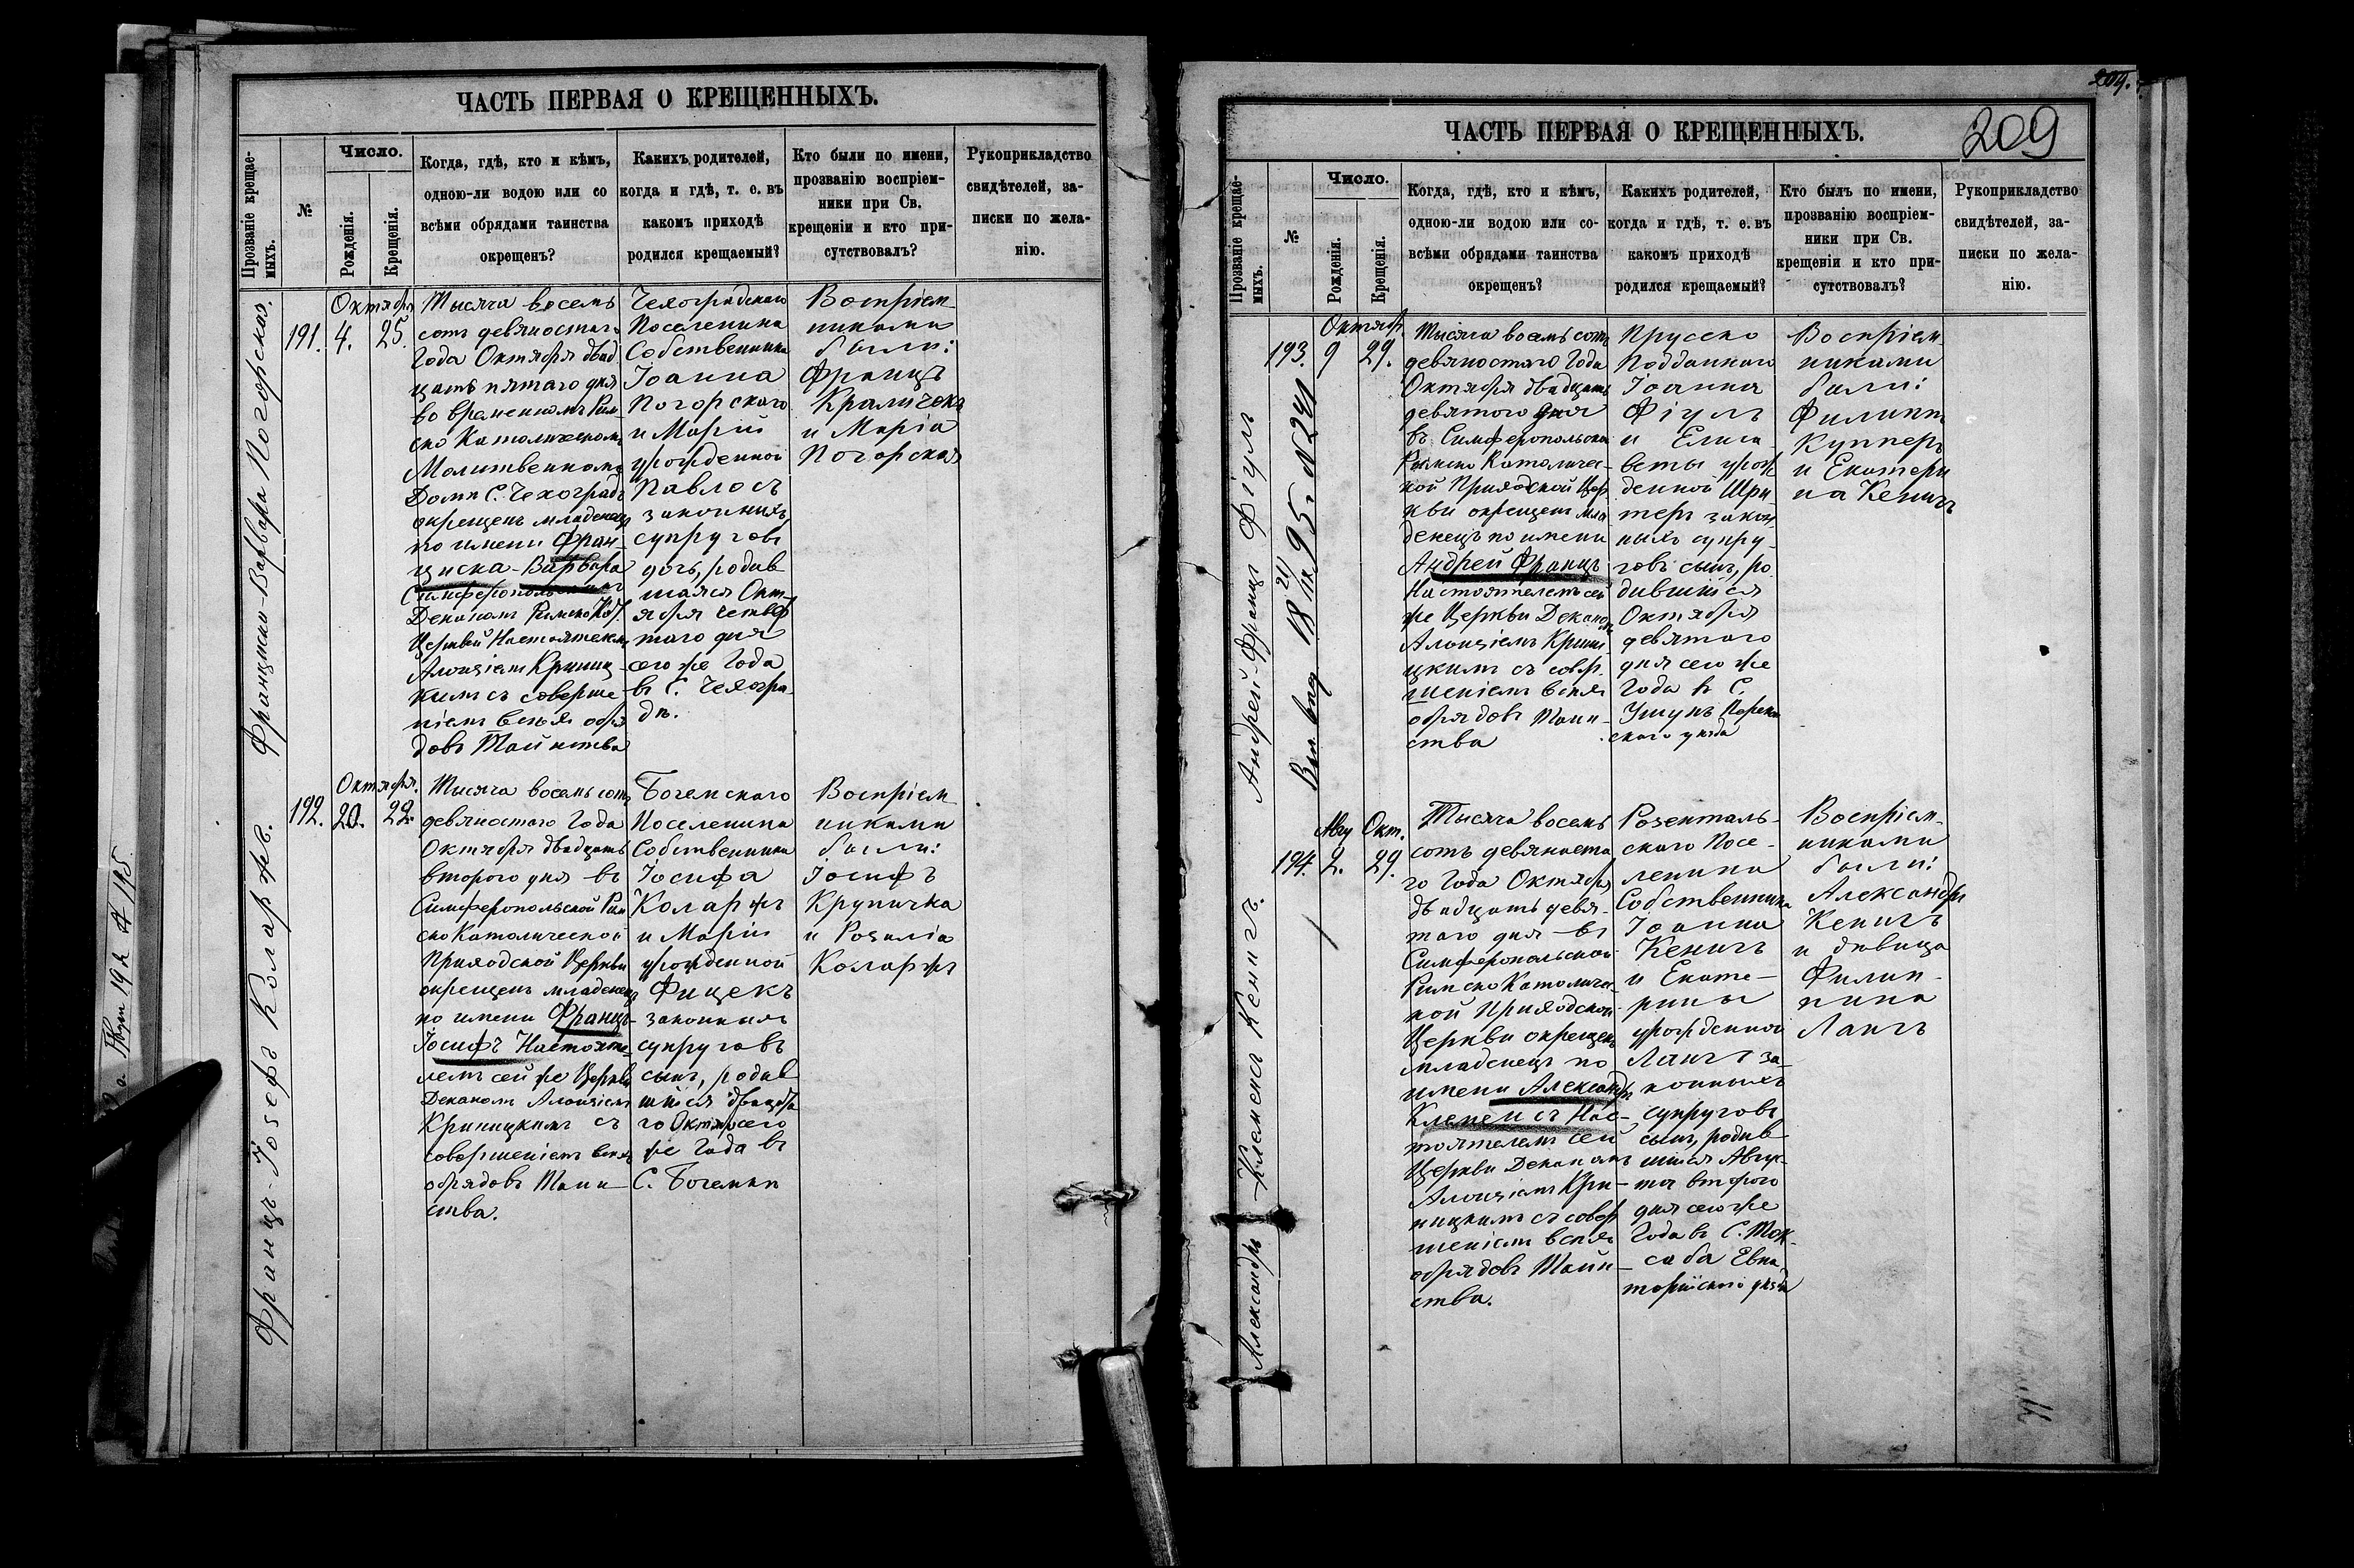 ЧАСТЬ ПЕРВАЯ О КРЕЩЕННЫХЪ.
Прозваніе крещае-
мыхъ.
№
Число.
Рожденія.
Крещенія.
Когда, гдѣ, кто и кѣмъ,
одною-ли водою или со
всѣми обрядами таинства
окрещенъ?
Какихъ родителей,
когда и гдѣ, т. е. въ
какомъ приходѣ
родился крещаемый?
Кто были по имени,
прозванію воспріем-
ники при Св.
крещеніи и кто при-
сутствовалъ?
Рукоприкладство
свидѣтелей, за-
писки по жела-
нію.
Франциска-Варвара Погорская.
191.
Октября
4. 25.
Тысяча восемь
сотъ девяностаго
Года Октября двад
цать пятаго дня
во временномъ Рим
ско Католическомъ
Молитвенномъ
Домѣ С. Чехоградъ
окрещенъ младенецъ
по имени Фран-
циска-Варвара
Симферопольскимъ
Деканомъ Римско Кат.
Церквей Настоятелемъ
Алоизіемъ Криниц-
кимъ съ соверше
ніемъ всѣхъ обря
довъ Таинства
Чехоградскаго
Поселенина
Собственника
Іоанна
Погорскаго
и Маріи
урожденной
Павлосъ
законныхъ
супруговъ
дочь, родив
шаяся Окт-
ября четвер
таго дня
сего же Года
въ С. Чехогра-
дѣ.
Воспріем-
никами
были:
Францъ
Краличекъ
и Марія
Погорская
Францъ-Іозефъ Коларжъ.
192.
Октября.
20. 22.
Тысяча восемь сотъ
девяностаго Года
Октября двадцать
второго дня въ
Симферопольской Рим
ско Католической
Приходской Церкви
окрещенъ младенецъ
по имени Францъ-
Іосифъ Настояте-
лемъ сей же Церкви
Деканомъ Алоизіемъ
Криницкимъ съ
совершеніемъ всѣхъ
обрядовъ Таин-
ства.
Богемскаго
Поселенина
Собственника
Іосифа
Коларжъ
и Маріи
урожденной
Фицекъ
законныхъ
супруговъ
сынъ, родив
шійся двадца
го Октяр. сего
же Года въ
С. Богемки
Воспріем
никами
были:
Іосифъ
Крупичка
и Розалія
Коларжъ
209.
209
ЧАСТЬ ПЕРВАЯ О КРЕЩЕННЫХЪ.
Прозваніе крещае-
мыхъ.
№
Число.
Рожденія.
Крещенія.
Когда, гдѣ, кто и кѣмъ,
одною-ли водою или со-
всѣми обрядами таинства
окрещенъ?
Какихъ родителей,
когда и гдѣ, т. е. въ
какомъ приходѣ
родился крещаемый?
Кто былъ по имени,
прозванію воспріем-
ники при Св.
крещеніи и кто при-
сутствовалъ?
Рукоприкладство
свидѣтелей, за-
писки по жела-
нію.
Андрей-Францъ Фіуль
193.
Октяб.
9 29.
Тысяча восемь сотъ
девяностаго Года
Октября двадцать
девятого дня
въ Симферопольской
Римско Католичес-
кой Приходской Цер
кви окрещенъ мла
денецъ по имени
Андрей Францъ
Настоятелемъ сей
же Церкви Деканомъ
Алоизіемъ Крини
цкимъ съ совер.
шеніемъ всѣхъ
обрядовъ Таин-
ства
Прусско
Подданнаго
Іоанна
Фіуль
и Елиса-
веты урож
денной Шри
теръ закон
ныхъ супру-
говъ сынъ, ро
дившійся
Октября
девятаго
дня сего же
Года въ С.
Ушунь Переко
скаго уѣзда
Воспріем-
никами
были:
Филиппъ
Купперъ
и Екатери
на Кенигъ
Александръ-Клеменсъ Кенигъ.
194.
Авгу Окт.
2. 29.
Тысяча восемь
сотъ девяноста
го Года Октября
двадцать девя-
таго дня въ
Симферопольской
Римско Католичес-
кой Приходской
Церкви окрещенъ
младенецъ по
имени Александръ
Клеменсъ Нас-
тоятелемъ сей
Церкви Деканомъ
Алоизіемъ Кри-
ницкимъ съ совер
шеніемъ всѣхъ
обрядовъ Таин-
ства.
Розенталь-
скаго Посе-
ленина
Собственника
Іоанна
Кенигъ
и Екате-
рины
урожденной
Лангъ за-
конныхъ
супруговъ
сынъ, родив-
шійся Авгус-
та второго
дня сего же
Года въ С. Ток-
саба Евпа
торійскаго уѣзда
Воспріем-
никами
были:
Александръ
Кенигъ
и дѣвица
Филип-
пина
Лангъ